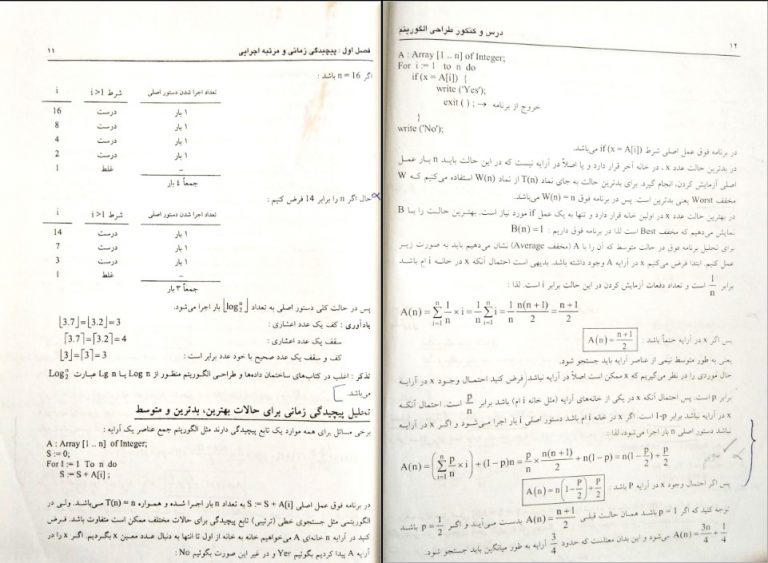 فصل اول : پیچیدگی زمانی و مرتبه اجرایی ۱۱
اگر n = 16 باشد :
i شرط i >1 تعداد اجرا شدن دستور اصلی
16 درست ۱ بار
8 درست ۱ بار
4 درست ۱ بار
2 درست ۱ بار
1 غلط –
جمعاً ٤ بار
حال اگر n را برابر 14 فرض کنیم :
i شرط i >1 تعداد اجرا شدن دستور اصلی
14 درست ۱ بار
7 درست ۱ بار
3 درست ۱ بار
1 غلط –
جمعاً ۳ بار
پس در حالت کلی دستور اصلی به تعداد ⌊log₂ⁿ⌋ بار اجرا می‌شود.
یادآوری : کف یک عدد اعشاری : ⌊3.7⌋ = ⌊3.2⌋ = 3
سقف یک عدد اعشاری : ⌈3.7⌉ = ⌈3.2⌉ = 4
کف و سقف یک عدد صحیح با خود عدد برابر است : ⌊3⌋ = ⌈3⌉ = 3
تذکر : اغلب در کتاب‌های ساختمان داده‌ها و طراحی الگوریتم منظور از Log n یا Lg n عبارت Log₂ⁿ
می‌باشد.
تحلیل پیچیدگی زمانی برای حالات بهترین، بدترین و متوسط
برخی مسائل برای همه موارد یک تابع پیچیدگی دارند مثل الگوریتم جمع عناصر یک آرایه :
A : Array [1 .. n] of Integer;
S := 0;
For I := 1 To n do
S := S + A[i] ;
در برنامه فوق عمل اصلی S := S + A[i] به تعداد n بار اجرا شده و همواره T(n) = n می‌باشد. ولی در
الگوریتمی مثل جستجوی خطی (ترتیبی) تابع پیچیدگی برای حالات مختلف ممکن است متفاوت باشد. فرض
کنید در آرایه n خانه‌ای A می‌خواهیم خانه به خانه از اول تا انتها به دنبال عدد معین x بگردیم. اگر x را در
آرایه A پیدا کردیم بگوئیم Yer و در غیر این صورت بگوئیم No :
درس و کنکور طراحی الگوریتم ۱۲
A : Array [1 .. n] of Integer;
For i := 1 to n do
if (x = A[i]) {
write ('Yes');
exit ( ) ; → خروج از برنامه
}
write ('No');
در برنامه فوق عمل اصلی شرط if (x = A[i]) می‌باشد.
در بدترین حالت عدد x ، در خانه آخر قرار دارد و یا اصلاً در آرایه نیست که در این حالت باید n بار عمل
اصلی آزمایش کردن، انجام گیرد. برای بدترین حالت به جای نماد T(n) از نماد W(n) استفاده می‌کنیم که W
مخفف Worst یعنی بدترین است. پس در برنامه فوق W(n) = n می‌باشد.
در بهترین حالت عدد x در اولین خانه قرار دارد و تنها به یک عمل if مورد نیاز است. بهترین حالت را با B
نمایش می‌دهیم که مخفف Best است لذا در برنامه فوق داریم : B(n) = 1
برای تحلیل برنامه فوق در حالت متوسط که آن را با A (مخفف Average) نشان می‌دهیم باید به صورت زیر
عمل کنیم. ابتدا فرض می‌کنیم x در آرایه A وجود داشته باشد. بدیهی است احتمال آنکه x در خانه i ام باشد
برابر 1/n است و تعداد دفعات آزمایش کردن در این حالت برابر i است. لذا :
A(n) = Σ_{i=1}^{n} 1/n × i = 1/n Σ_{i=1}^{n} i = 1/n n(n+1)/2 = (n+1)/2
پس اگر x در آرایه حتماً باشد : A(n) = (n+1)/2
یعنی به طور متوسط نیمی از عناصر آرایه باید جستجو شود.
حال موردی را در نظر می‌گیریم که x ممکن است اصلاً در آرایه نباشد. فرض کنید احتمال وجود x در آرایه
برابر p است. پس احتمال آنکه x در یکی از خانه‌های آرایه (مثل خانه i ام) باشد برابر p/n است. احتمال آنکه
x در آرایه نباشد برابر 1-p است. اگر x در خانه i ام باشد دستور اصلی i بار اجرا می‌شود و اگر x در آرایه
نباشد دستور اصلی n بار اجرا می‌شود، لذا :
A(n) = (Σ_{i=1}^{n} p/n × i) + (1-p)n = p/n × n(n+1)/2 + n(1-p) = n(1 - p/2) + p/2
پس اگر احتمال وجود x در آرایه P باشد : A(n) = n(1 - p/2) + p/2
توجه کنید که اگر p = 1 باشد همان حالت قبلی A(n) = (n+1)/2 بدست می‌آیند و اگر p = 1/2 باشد
A(n) = 3n/4 + 1/4 می‌شود و این بدان معناست که حدود 3/4 آرایه به طور میانگین باید جستجو شود.